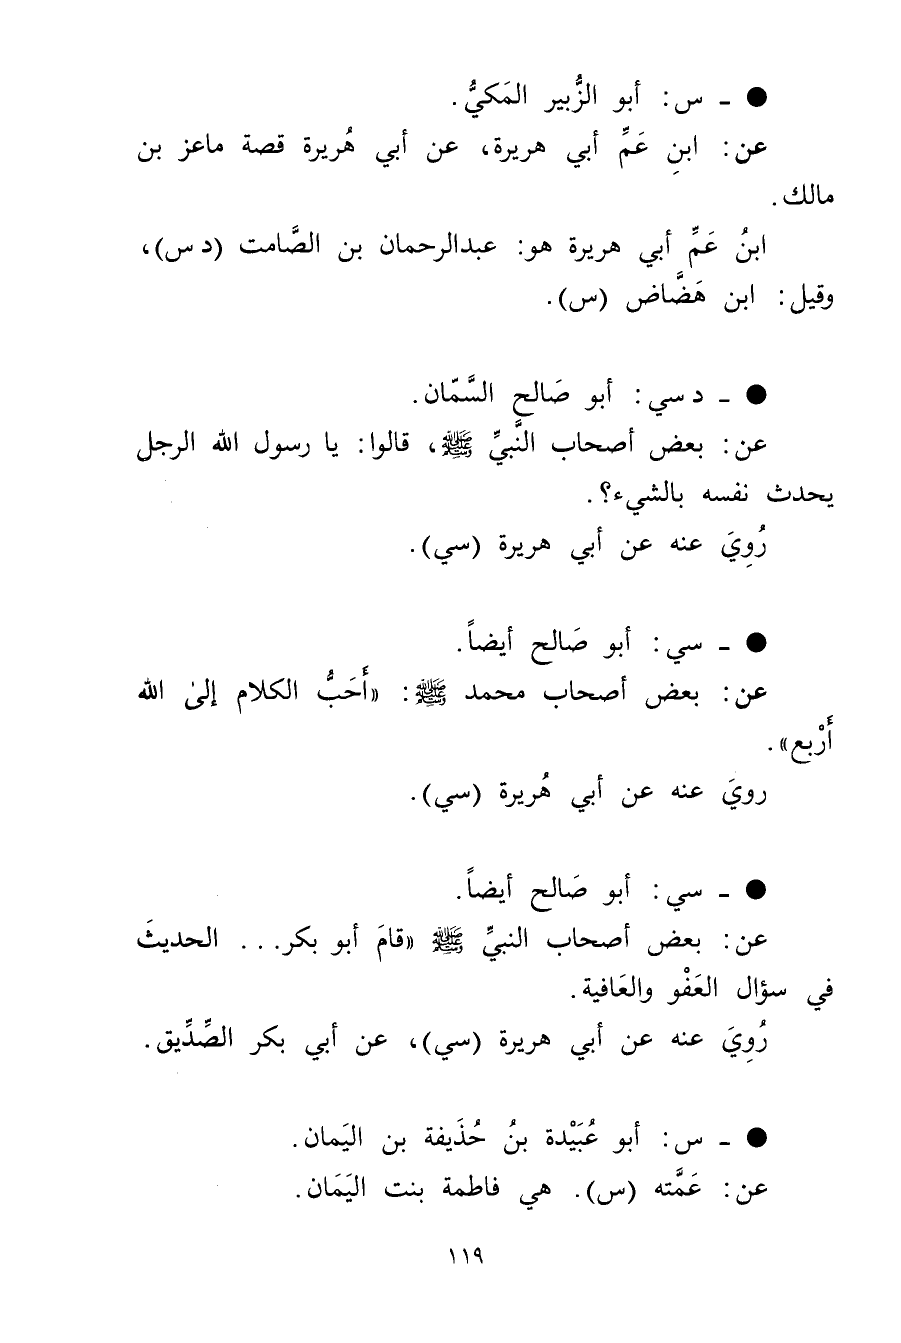 ● ـ س: أبو الزُّبير المَكيُّ.
عن: ابنِ عَمِّ أبي هريرة، عن أبي هُريرة قصة ماعز بن
مالك.
ابنُ عَمِّ أبي هريرة هو: عبدالرحمان بن الصَّامت (د س)،
وقيل: ابن هَضَّاض (س).
● ـ د سي: أبو صَالح السَّمّان.
عن: بعض أصحاب النَّبيِّ ﷺ، قالوا: يا رسول الله الرجل
يحدث نفسه بالشيء؟.
رُوِيَ عنه عن أبي هريرة (سي).
● ـ سي: أبو صَالح أيضاً.
عن: بعض أصحاب محمد ﷺ: «أَحَبُّ الكلام إلىٰ الله
أَرْبع».
رويَ عنه عن أبي هُريرة (سي).
● ـ سي: أبو صَالح أيضاً.
عن: بعض أصحاب النبيِّ ﷺ «قامَ أبو بكر... الحديثَ
في سؤال العَفْو والعَافية.
رُوِيَ عنه عن أبي هريرة (سي)، عن أبي بكر الصِّدِّيق.
● ـ س: أبو عُبَيْدة بنُ حُذَيفة بن اليَمان.
عن: عَمَّته (س). هي فاطمة بنت اليَمَان.
١١٩